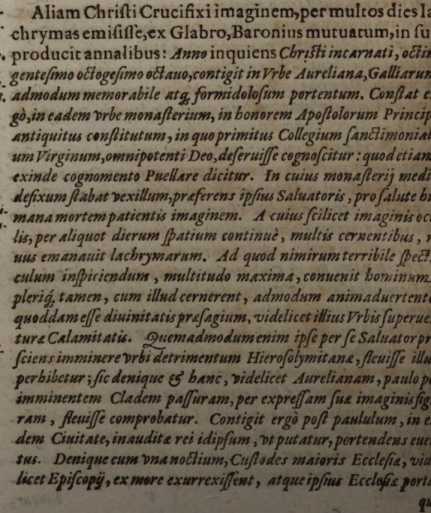 Aliam Chriſti Crucifixi imaginem, per multos dies la
chrymas emiſiſſe, ex Glabro, Baronius mutuatum, in ſu
producit annalibus: Anno inquiens Chriſti incarnati, octin
genteſimo octogeſimo octauo, contigit in Vrbe Aureliana, Galliarum
admodum memorabile atq́, formidoloſum portentum. Conſtat e
gò, in eadem vrbe monaſterium, in honorem Apoſtolorum Princip
antiquitus conſtitutum, in quo primitus Collegium ſanctimonial
um Virginum, omnipotenti Deo, deſeruiſſe cognoſcitur: quod etiam
exinde cognomento Puellare dicitur. In cuius monaſterij medi
defixum ſtabat vexillum, præferens ipſius Saluatoris, pro ſalute hu
mana mortem patientis imaginem. A cuius ſcilicet imaginis oc
lis, per aliquot dierum ſpatium continuè, multis cernentibus, r
uus emanauit lachrymarum. Ad quod nimirum terribile ſpect
culum inſpiciendum, multitudo maxima, conuenit hominum
pleriq́, tamen, cum illud cernerent, admodum animaduertente
quoddam eſſe diuinitatis præſagium, videlicet illius Vrbis ſuperue
turæ Calamitatis. Quemadmodum enim ipſe per ſe Saluator pr
ſciens imminere vrbi detrimentum Hieroſolymitanæ, fleuiſſe illu
perhibetur; ſic denique & hanc, videlicet Aurelianam, paulo p
imminentem Cladem paſſuram, per expreſſam ſuæ imaginis fig
ram, fleuiſſe comprobatur. Contigit ergò poſt paululum, in e
dem Ciuitate, inauditæ rei idipſum, vt putatur, portendens euen
tus. Denique cum vna noctium, Cuſtodes maioris Eccleſiæ, vide
licet Epiſcopij, ex more exurrexiſſent, atque ipſius Eccleſiæ porta
qu